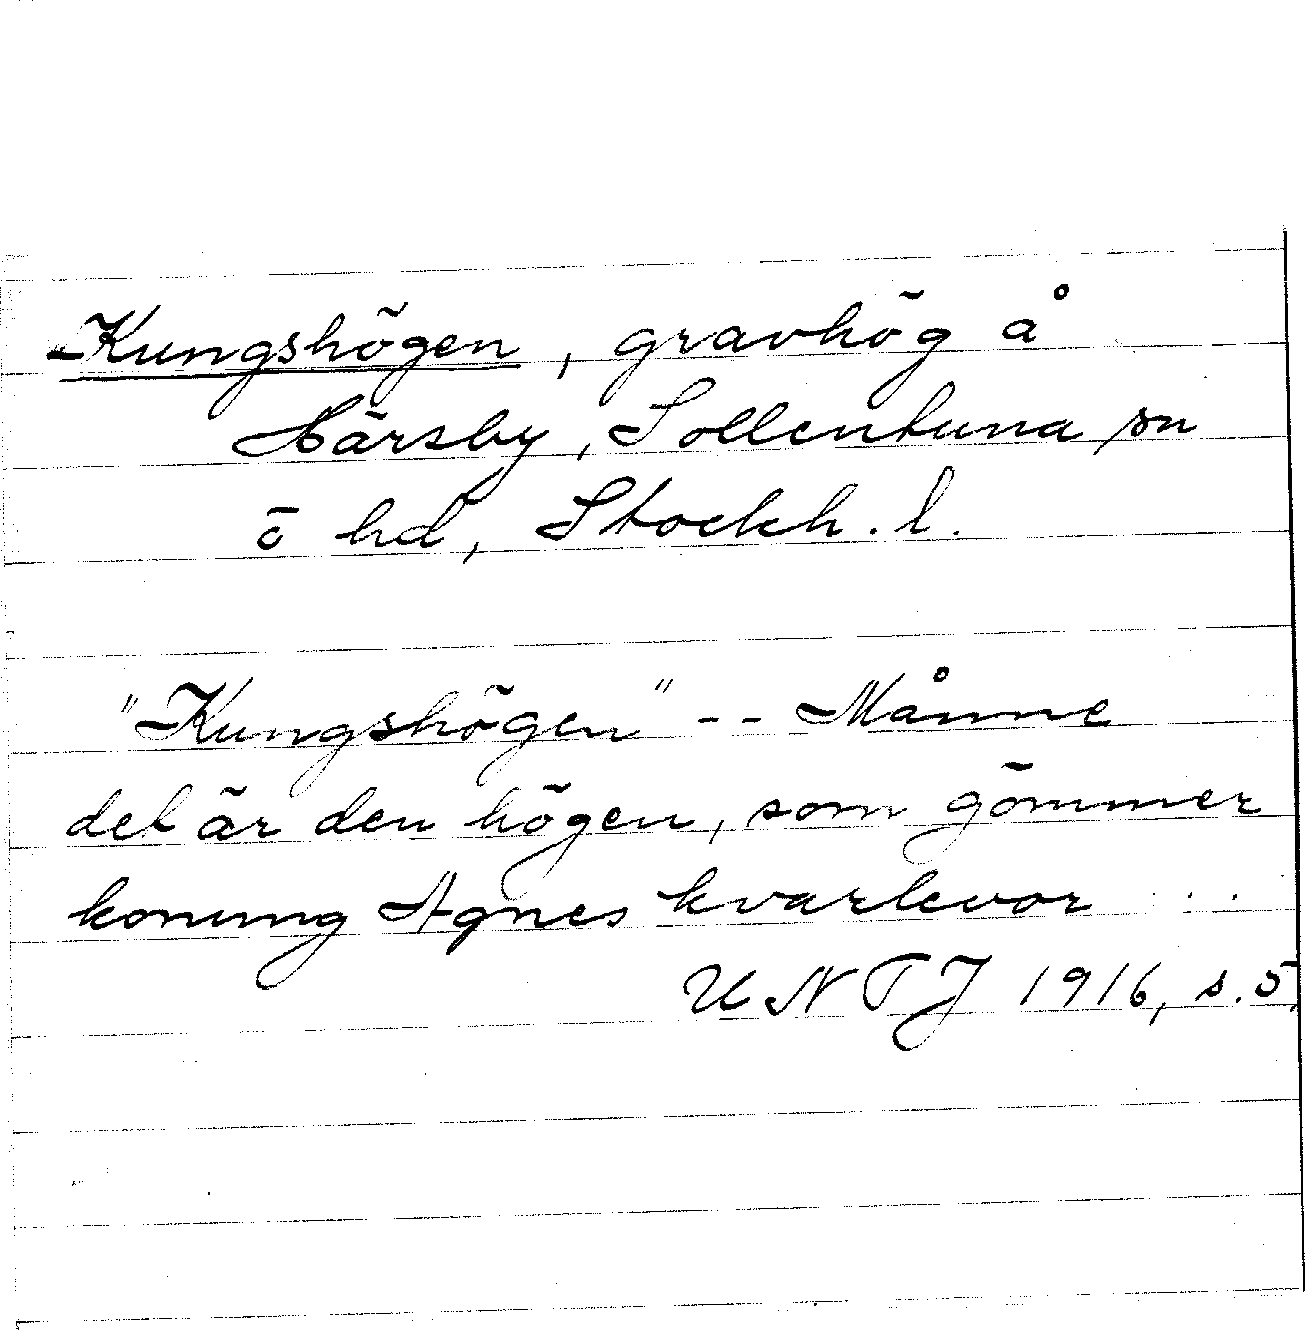 Kungshögen, gravhög å
Härsby, Sollentuna sn
o hd, Stockh. l.
"Kungshögen" -- Månne
det är den högen, som gömmer
konung Agnes kvarlevor ...
UNTJ 1916, s. 5.